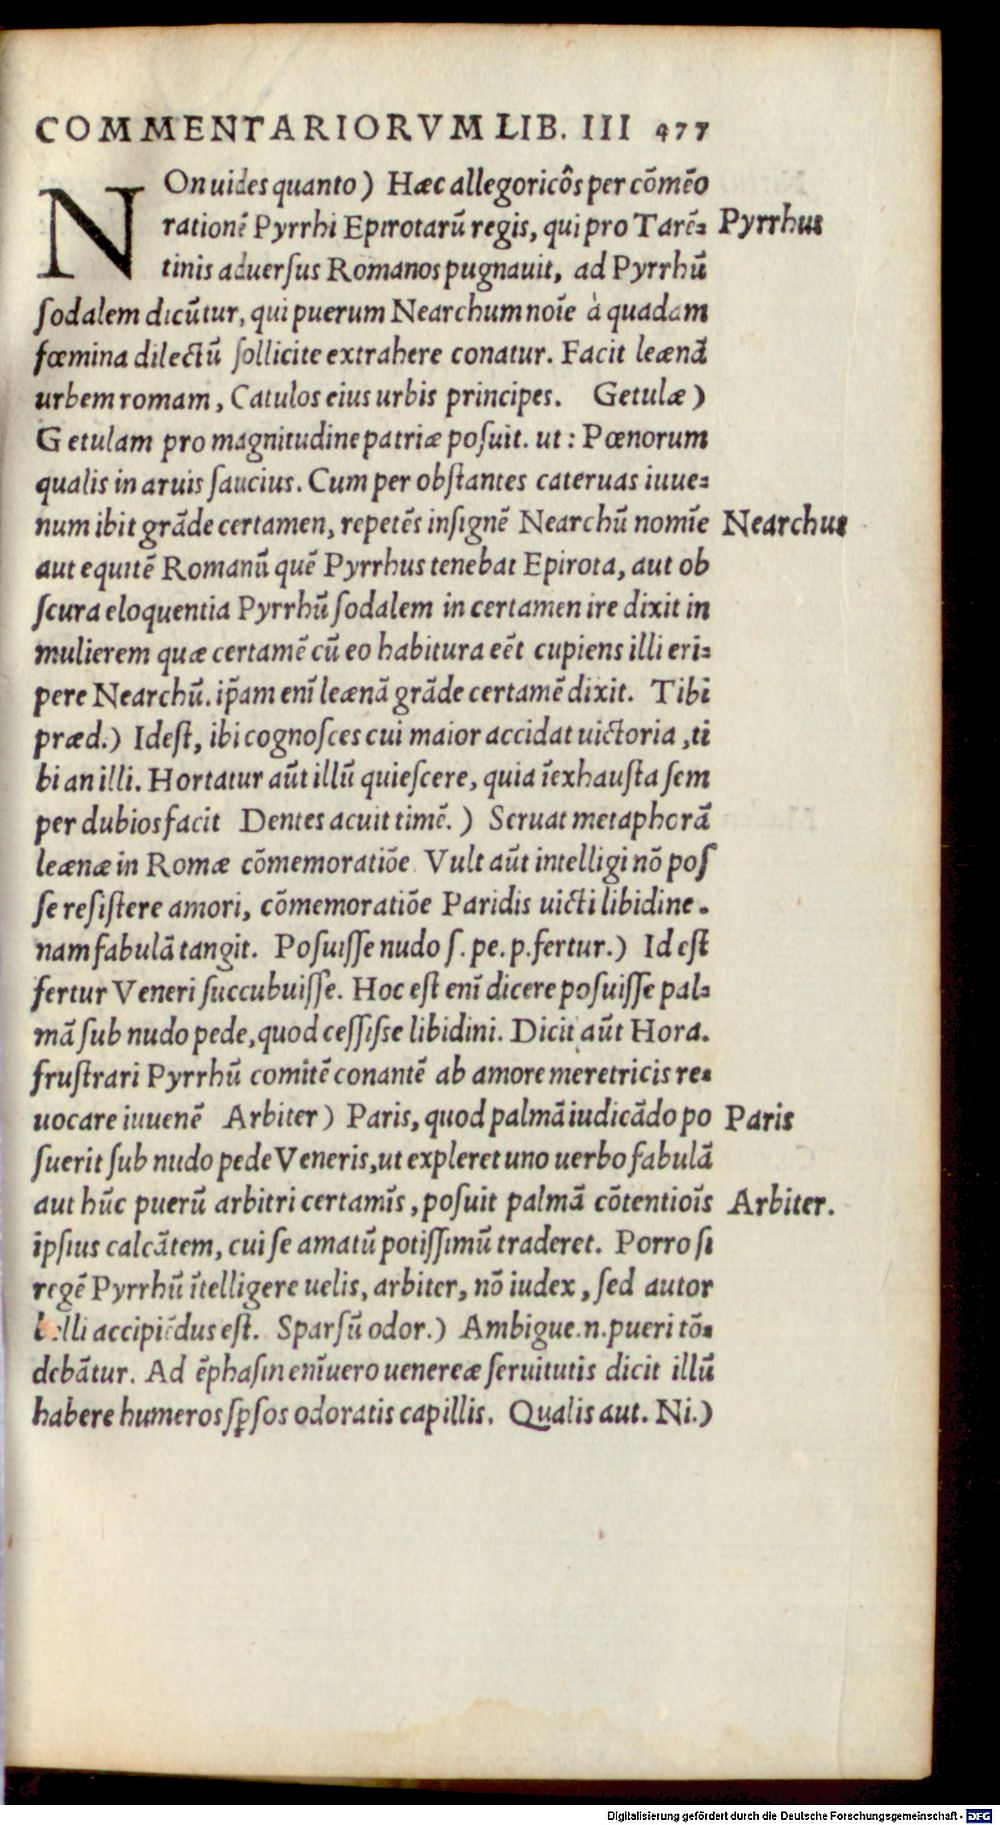 COMMENTARIORVM LIB. III 477
NOn uides quanto) Hæc allegoricôs per cõmẽo
rationẽ Pyrrhi Epirotarũ regis, qui pro Tarẽ= Pyrrhus
tinis aduerſus Romanos pugnauit, ad Pyrrhũ
ſodalem dicũtur, qui puerum Nearchum noĩe à quadam
fœmina dilectũ ſollicite extrahere conatur. Facit leænã
urbem romam, Catulos eius urbis principes. Getulæ)
Getulam pro magnitudine patriæ poſuit. ut: Pœnorum
qualis in aruis ſaucius. Cum per obſtantes cateruas iuue=
num ibit grãde certamen, repetẽs inſignẽ Nearchũ nomĩe Nearchus
aut equitẽ Romanũ quẽ Pyrrhus tenebat Epirota, aut ob
ſcura eloquentia Pyrrhũ ſodalem in certamen ire dixit in
mulierem quæ certamẽ cũ eo habitura eẽt cupiens illi eri=
pere Nearchũ. ip̃am enĩ leænã grãde certamẽ dixit. Tibi
præd.) Ideſt, ibi cognoſces cui maior accidat uictoria, ti
bi an illi. Hortatur aũt illũ quieſcere, quia ĩexhauſta ſem
per dubios facit Dentes acuit timẽ.) Seruat metaphorã
leænæ in Romæ cõmemoratiõe Vult aũt intelligi nõ poſ
ſe reſiſtere amori, cõmemoratiõe Paridis uicti libidine.
nam fabulã tangit. Poſuiſſe nudo ſ. pe. p. fertur.) Id eſt
fertur Veneri ſuccubuiſſe. Hoc eſt enĩ dicere poſuiſſe pal=
mã ſub nudo pede, quod ceſſiſse libidini. Dicit aũt Hora.
fruſtrari Pyrrhũ comitẽ conantẽ ab amore meretricis re=
uocare iuuenẽ Arbiter) Paris, quod palmã iudicãdo po Paris
ſuerit ſub nudo pede Veneris, ut expleret uno uerbo fabulã
aut hũc puerũ arbitri certamĩs, poſuit palmã cõtentioĩs Arbiter.
ipſius calcãtem, cui ſe amatũ potiſſimũ traderet. Porro ſi
regẽ Pyrrhũ ĩtelligere uelis, arbiter, nõ iudex, ſed autor
belli accipiẽdus eſt. Sparſũ odor.) Ambigue.n.pueri tõ=
debãtur. Ad ẽphaſin enĩuero uenereæ ſeruitutis dicit illũ
habere humeros ſꝑſos odoratis capillis. Qualis aut. Ni.)
Digitalisierung gefördert durch die Deutsche Forschungsgemeinschaft - DFG